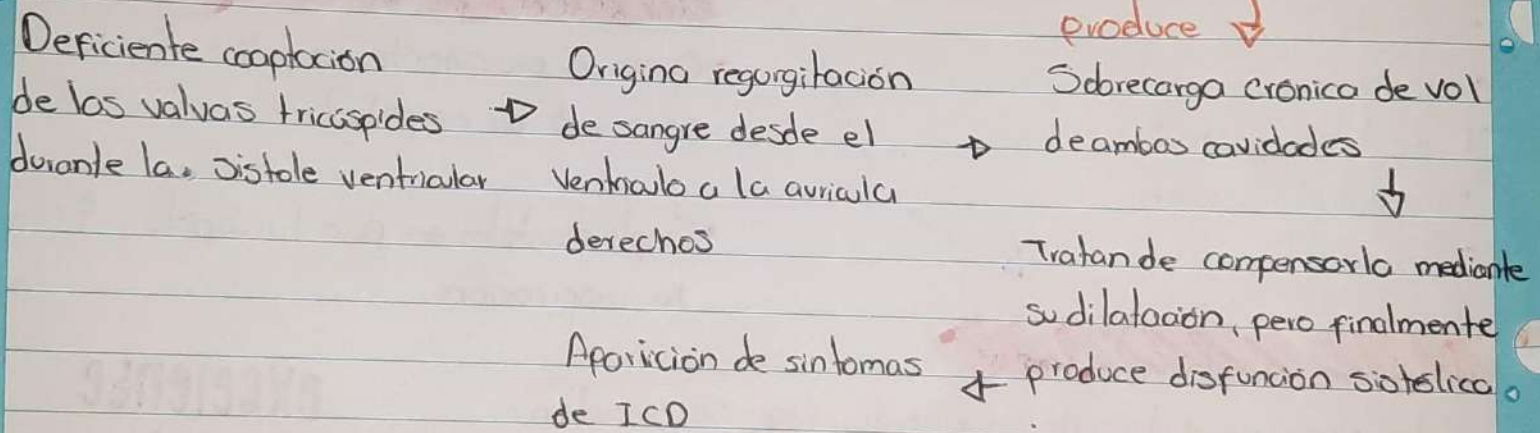 Deficiente cooptación
de las valvas tricúspides →
durante la sístole ventricular
Origina regurgitación
de sangre desde el →
ventriculo a la auricula
derechos
produce ↓
Sobrecarga crónica de vol
de ambas cavidades
↓
Tratan de compensarla mediante
su dilatación, pero finalmente
produce disfunción sistólica.
←
Aparición de sintomas
de ICD